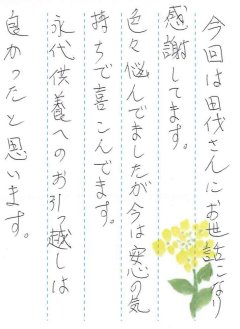 今回は田伐さんにお世話になり
感謝してます。
色々悩んでましたが今は安心の気
持ちで喜こんでます。
永代供養へのお引っ越しは
良かったと思います。